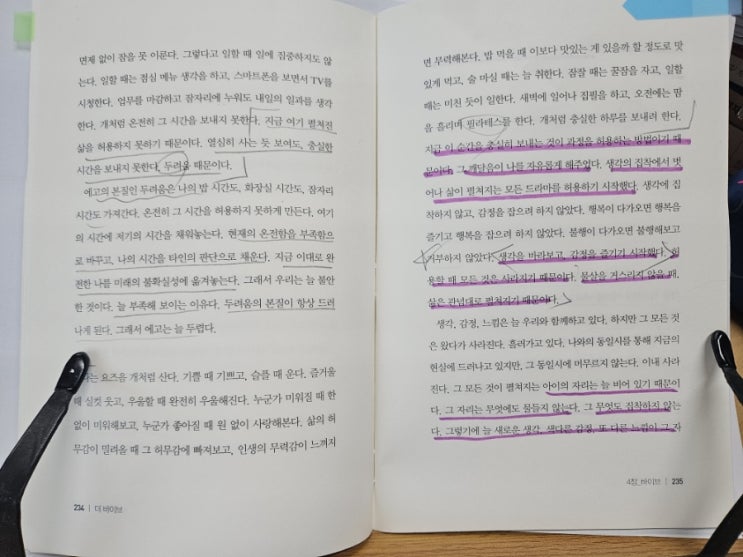 면제 없이 잠을 못 이룬다. 그렇다고 일할 때 일에 집중하지도 않
는다. 일할 때는 점심 메뉴 생각을 하고, 스마트폰을 보면서 TV를
시청한다. 업무를 마감하고 잠자리에 누워도 내일의 일과를 생각
한다. 개처럼 온전히 그 시간을 보내지 못한다. 지금 여기 펼쳐진
삶을 허용하지 못하기 때문이다. 열심히 사는 듯 보여도, 충실한
시간을 보내지 못한다. 두려움 때문이다.
에고의 본질인 두려움은 나의 밥 시간도, 화장실 시간도, 잠자리
시간도 가져간다. 온전히 그 시간을 허용하지 못하게 만든다. 여기
의 시간에 저기의 시간을 채워놓는다. 현재의 온전함을 부족함으
로 바꾸고, 나의 시간을 타인의 판단으로 채운다. 지금 이대로 완
전한 나를 미래의 불확실성에 옮겨놓는다. 그래서 우리는 늘 불안
한 것이다. 늘 부족해 보이는 이유다. 두려움의 본질이 항상 드러
나게 된다. 그래서 에고는 늘 두렵다.
나는 요즈음 개처럼 산다. 기쁠 때 기쁘고, 슬플 때 운다. 즐거울
때 실컷 웃고, 우울할 때 완전히 우울해진다. 누군가 미워질 때 한
없이 미워해보고, 누군가 좋아질 때 원 없이 사랑해본다. 삶의 허
무감이 밀려올 때 그 허무감에 빠져보고, 인생의 무력감이 느껴지
234 | 더 바이브
면 무력해본다. 밥 먹을 때 이보다 맛있는 게 있을까 할 정도로 맛
있게 먹고, 술 마실 때는 늘 취한다. 잠잘 때는 꿀잠을 자고, 일할
때는 미친 듯이 일한다. 새벽에 일어나 집필을 하고, 오전에는 땀
을 흘리며 필라테스를 한다. 개처럼 충실한 하루를 보내려 한다.
지금 이 순간을 충실히 보내는 것이 과정을 허용하는 방법이기 때
문이다. 그 깨달음이 나를 자유롭게 해주었다. 생각의 집착에서 벗
어나 삶이 펼쳐지는 모든 드라마를 허용하기 시작했다. 생각에 집
착하지 않고, 감정을 잡으려 하지 않았다. 행복이 다가오면 행복을
즐기고 행복을 잡으려 하지 않았다. 불행이 다가오면 불행해보고
거부하지 않았다. 생각을 바라보고, 감정을 즐기기 시작했다. 허
용할 때 모든 것은 사라지기 때문이다. 물살을 거스르지 않을 때,
삶은 관념대로 펼쳐지기 때문이다.
생각, 감정, 느낌은 늘 우리와 함께하고 있다. 하지만 그 모든 것
은 왔다가 사라진다. 흘러가고 있다. 나와의 동일시를 통해 지금의
현실에 드러나고 있지만, 그 동일시에 머무르지 않는다. 이내 사라
진다. 그 모든 것이 펼쳐지는 아이의 자리는 늘 비어 있기 때문이
다. 그 자리는 무엇에도 물들지 않는다. 그 무엇도 집착하지 않는
다. 그렇기에 늘 새로운 생각, 색다른 감정, 또 다른 느낌이 그 자
4장_바이브 | 235